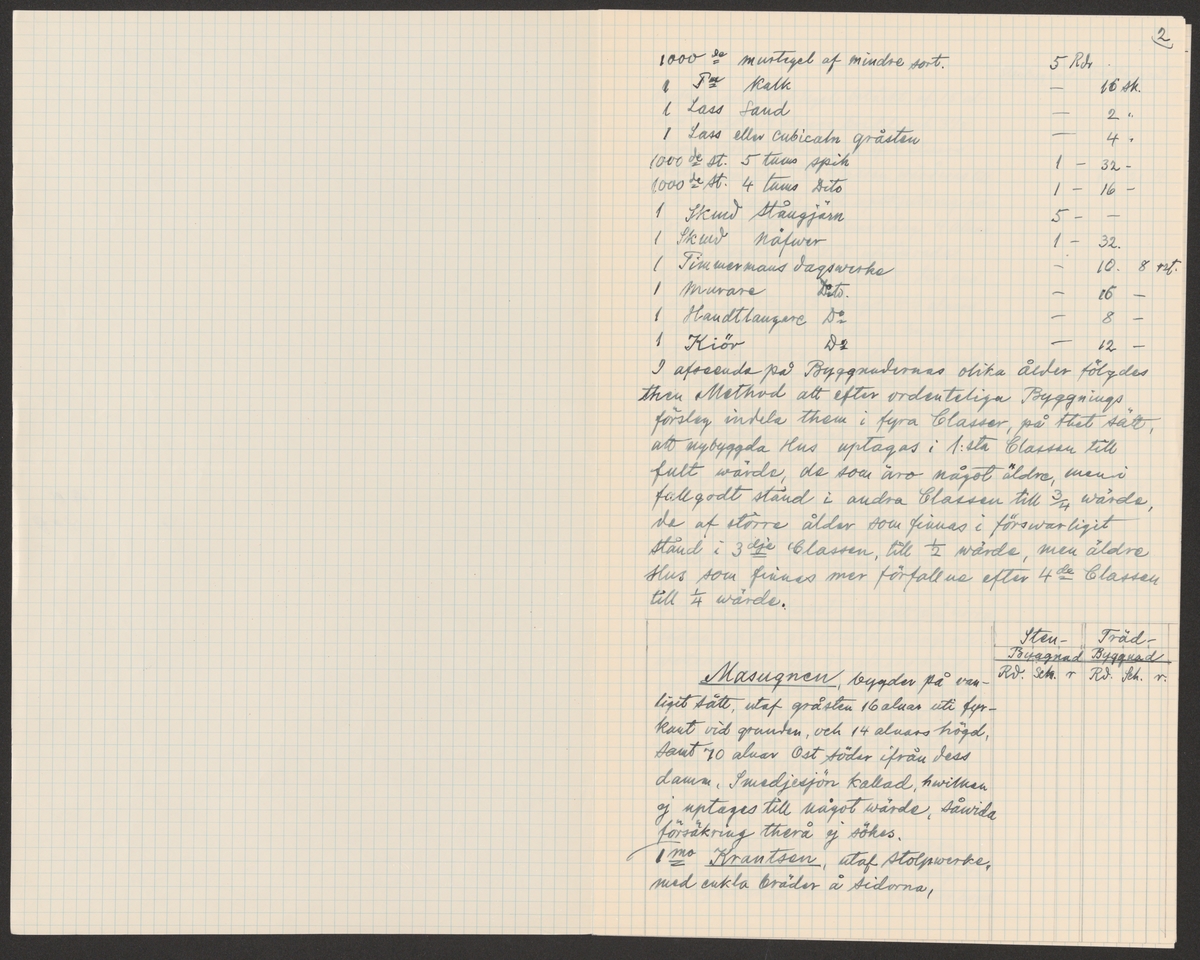 2
1000 de murtegel af mindre sort. 5 Rdr.
1 Tna Kalk — 16 sk.
1 Lass Sand — 2 "
1 Lass eller cubicaln gråsten — 4 "
1000 de st. 5 tums spik 1 – 32 –
1000 de st. 4 tums Dito 1 – 16 –
1 Skmd stångjärn 5 – –
1 Skmd Näfwer 1 – 32.
1 Timmermans dagswerke – 10. 8 rst.
1 Murare Dito. – 16 –
1 Handtlangare Do – 8 –
1 Kiör Do – 12 –
I afseende på Byggnadernas olika ålder följdes
then Method att efter ordenteliga Byggnings
förslag indela them i fyra Classer, på thet sätt,
att nybyggda Hus uptagas i 1:sta Classen till
fult wärde, de som äro något äldre, men i
fullgodt stånd i andra Classen till 3/4 wärde,
de af större ålder som finnas i förswarligit
stånd i 3 dje Classen, till 1/2 wärde, men äldre
Hus som finnas mer förfallne efter 4 de Classen
till 1/4 wärde.
Sten- Träd-
Byggnad Byggnad
Rd. Sch. r Rd. Sch. r.
Masugnen, bygder på van-
ligit sätt, utaf gråsten 16 alnar uti fyr-
kant vid grunden, och 14 alnars högd,
samt 70 alnar Ost söder ifrån dess
damm, Smedjesjön kallad, hwilken
ej uptages till något wärde, såwida
försäkring therå ej sökes.
1 mo Krantsen, utaf stolpwerke,
med enkla bräder å sidorna,